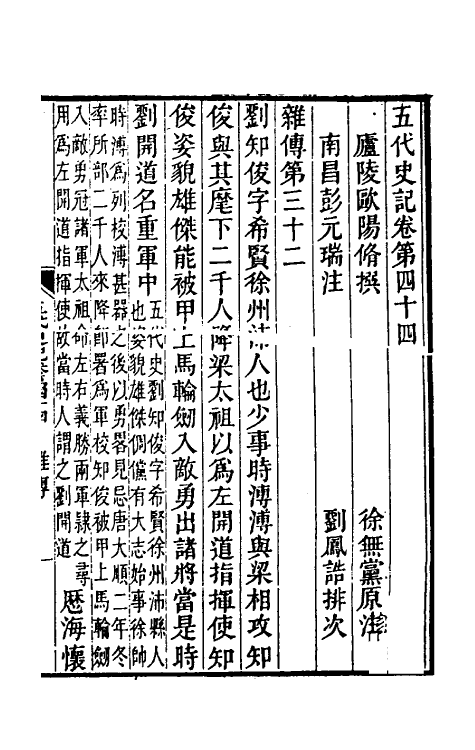 五代史記卷第四十四
廬陵歐陽脩撰 徐無黨原注
南昌彭元瑞注 劉鳳誥排次
雜傳第三十二
劉知俊字希賢徐州沛人也少事時溥溥與梁相攻知
俊與其麾下二千人降梁太祖以爲左開道指揮使知
俊姿貌雄傑能被甲上馬輪劒入敵勇出諸將當是時
劉開道名重軍中五代史劉知俊字希賢徐州沛縣人
也姿貌雄傑倜儻有大志始事徐帥
時溥爲列校溥甚器之後以勇畧見忌唐大順二年冬
率所部二千人來降卽署爲軍校知俊被甲上馬輪劒
入敵勇冠諸軍太祖命左右義勝兩軍隸之尋
用爲左開道指揮使故當時人謂之劉開道
歷海懷
雜傳
一